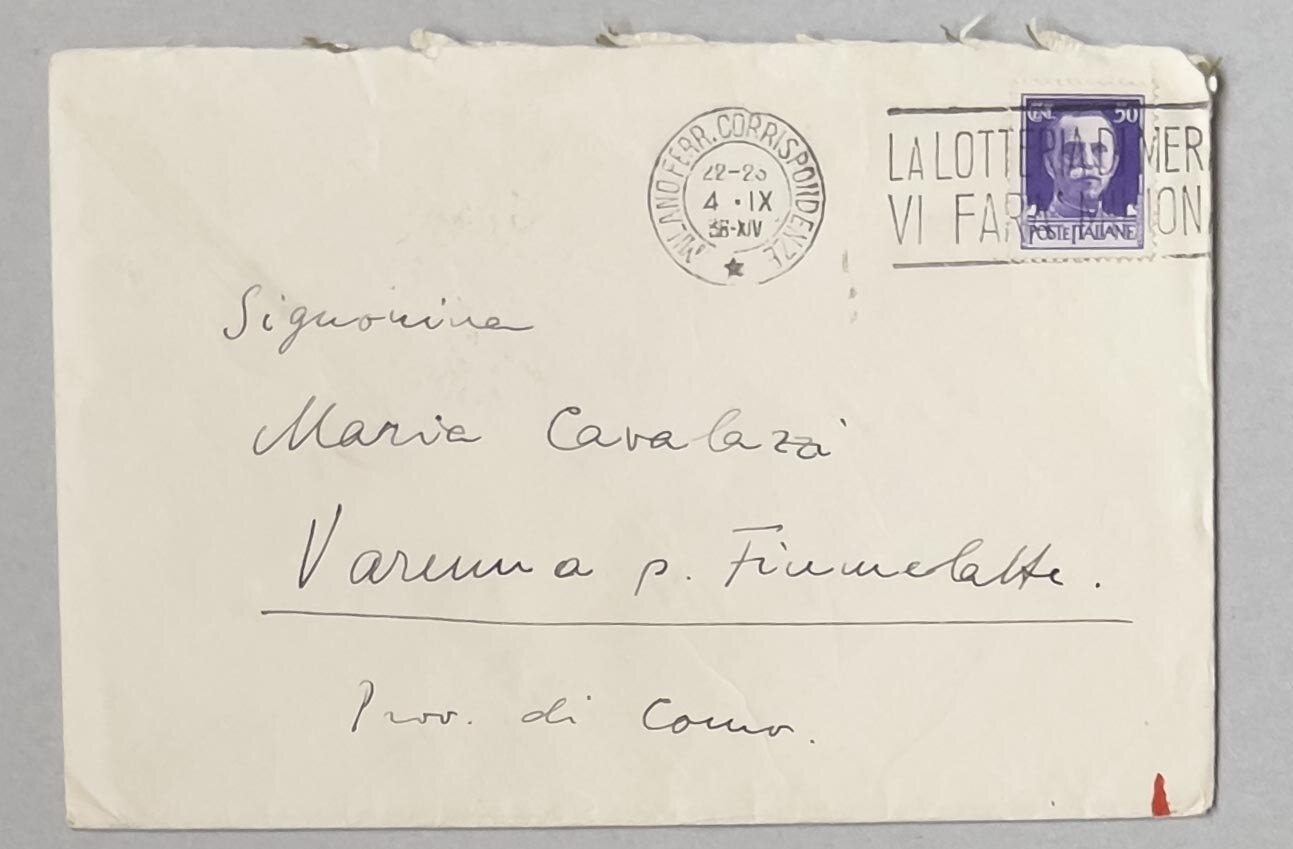 MILANO FERR. CORRISPONDENZE
22-23
4 · IX
36-XIV
CENT. 50
POSTE ITALIANE
LA LOTTERIA DI MER
VI FARA' MILION
Signorina
Maria Cavalazzi
Varenna p. Fiumelatte.
Prov. di Como.